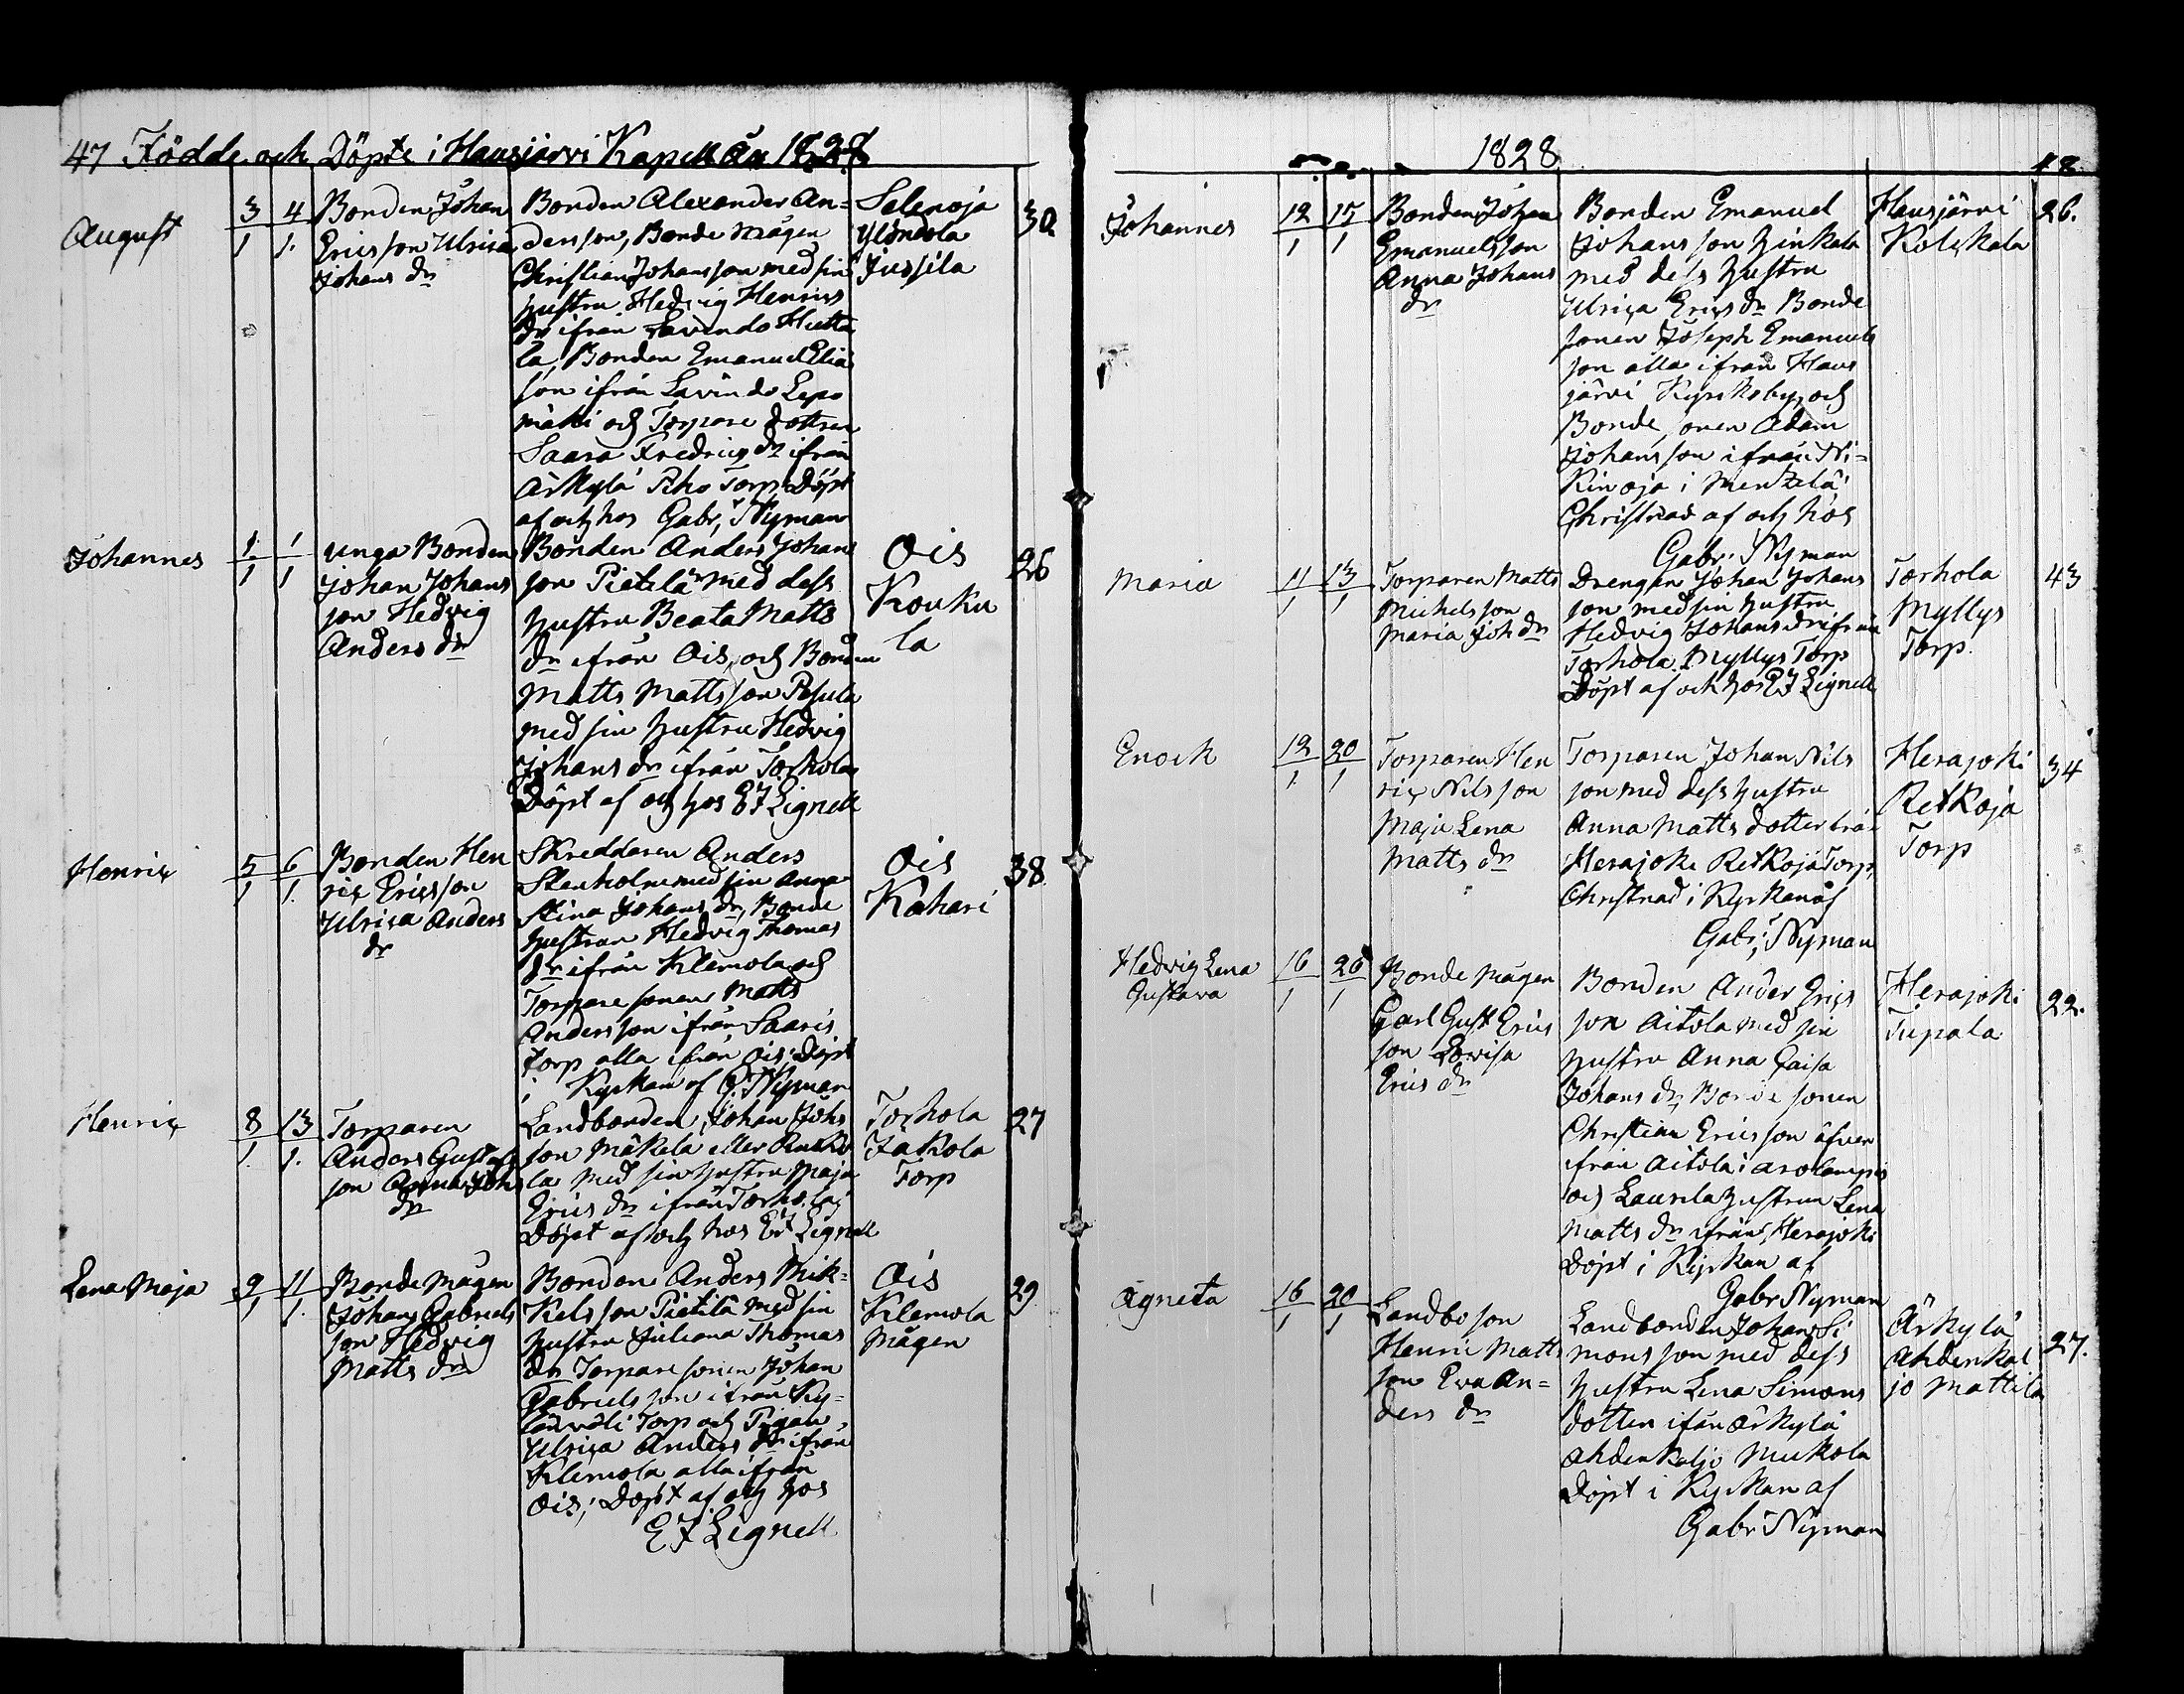 47 Födde och Döpte i Hausjärvi Kapell År 1828
August
3/1
4/1.
Bonden Johan
Ericsson Ulrica
Johans dr
Bonden Alexander An=
dersson, Bonde Mågen
Christian Johansson med sin
hustru Hedvig Henrics
dr ifrån Lavindo Hutta
la, Bonden Emanuel Elia
son ifrån Lavindo Lepo
mäki och Torpare dottren
Saara Fredrics dr ifrån
Ärkylä Piho Torp. Döpt
af och hos Gabr. Nyman
Selenoja
Ylöndola
Jussila
30
Johannes
1/1
1/1
Unga Bonden
Johan Johans
son Hedvig
Anders dr
Bonden Anders Johans
son Pietilä med dess
hustru Beata Matts
dr ifrån Ois, och Bonden
Matts Mattsson Pesula
med sin hustru Hedvig
Johans dr ifrån Torhola
Döpt af och hos EJ Lignell
Ois
Kouku
la
26
Henric
5/1
6/1.
Bonden Hen
ric Ericsson
Ulrica Anders
dr
Skreddaren Anders
Stenholm med sin Anna
Stina Johans dr, Bonde
hustrun Hedvig Thomas
dr ifrån Klemola och
Torpare sonen Matts
Andersson ifrån Saaris
torp alla ifrån Ois; Döpt
i Kyrkan af G. Nyman
Ois
Kahari
38
Henric
8/1.
13/1.
Torparen
Anders Gustafs
son Anna Johs
dr
Landbonden Johan Johs
son Mäkelä eller Rukko
la med sin hustru Maja
Erics dr ifrån Torhola;
Döpt af och hos EJ Lignell
Torhola
Jakola
Torp
27
Lena Maja
9/1
11/1.
Bonde Mågen
Johan Gabriels
son Hedvig
Matts dr
Bonden Anders Mik=
kelsson Pietilä med sin
hustru Juliana Thomas
dr Torpare sonen Johan
Gabrielsson ifrån Ky=
länväli Torp och Pigan
Ulrica Anders dr ifrån
Klemola alla ifrån
Ois; Döpt af och hos
EJ Lignell
Ois
Klemola
Mågen
29
1828
48
Johannes
12/1
15/1
Bonden Johan
Emanuelsson
Anna Johans
dr
Bonden Emanuel
Johansson Hinkala
med dess hustru
Ulrica Erics dr Bonde
sonen Joseph Emanuels
son alla ifrån Haus
järvi Kyrkoby, och
Bonde sonen Adam
Johansson ifrån Ni=
kinoja i Mentzelä
Christnad af och hos
Gabr. Nyman
Hausjärvi
Kolckala
26.
Maria
11/1
13/1
Torparen Matts
Michelsson
Maria Joh dr
Drengen Johan Johans
son med sin hustru
Hedvig Johans dr ifrån
Torhola Myllys Torp
Döpt af och hos EJ Lignell
Torhola
Myllys
Torp
43
Enock
12/1.
20/1
Torparen Hen
ric Nilsson
Maja Lena
Matts dr
Torparen Johan Nils
son med dess hustru
Anna Matts dotter frå
Herajoki Retkoja Torp,
Christnad i Kyrkan af
Gabr. Nyman
Herajoki
Retkoja
Torp
34
Hedvig Lena
Gustava
16/1
20/1
Bonde Mågen
Carl Gust Erics
son Lovisa
Erics dr
Bonden Ander Erics
son Aitola med sin
hustru Anna Caisa
Johans dr, Bonde sonen
Christian Ericsson äfven
ifrån Aitola i Arolampi
och Laurila hustrun Lena
Matts dr ifrån Herajoki
Döpt i Kyrkan af
Gabr Nyman
Herajoki
Tupala
22.
Agneta
16/1
20/1
Landbo son
Henric Matts
son Eva An=
ders dr
Landbonden Johan Si
monsson med dess
hustru Lena Simons
dotter ifrån Ärkylä
Ahdenkaljo Mukola
Döpt i Kyrkan af
Gabr Nyman
Ärkylä
Ahdenkal
jo Mattila
27.